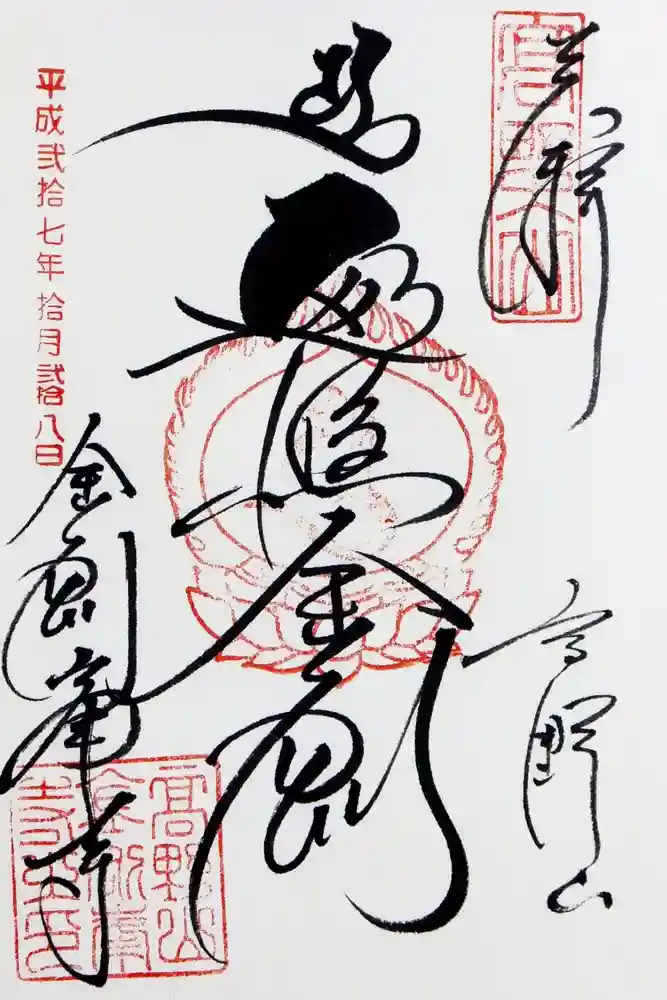 奉拝
高野山
遍照金剛
平成弐拾七年拾月弐拾八日
金剛峯寺
高野山
金剛峯
寺之印